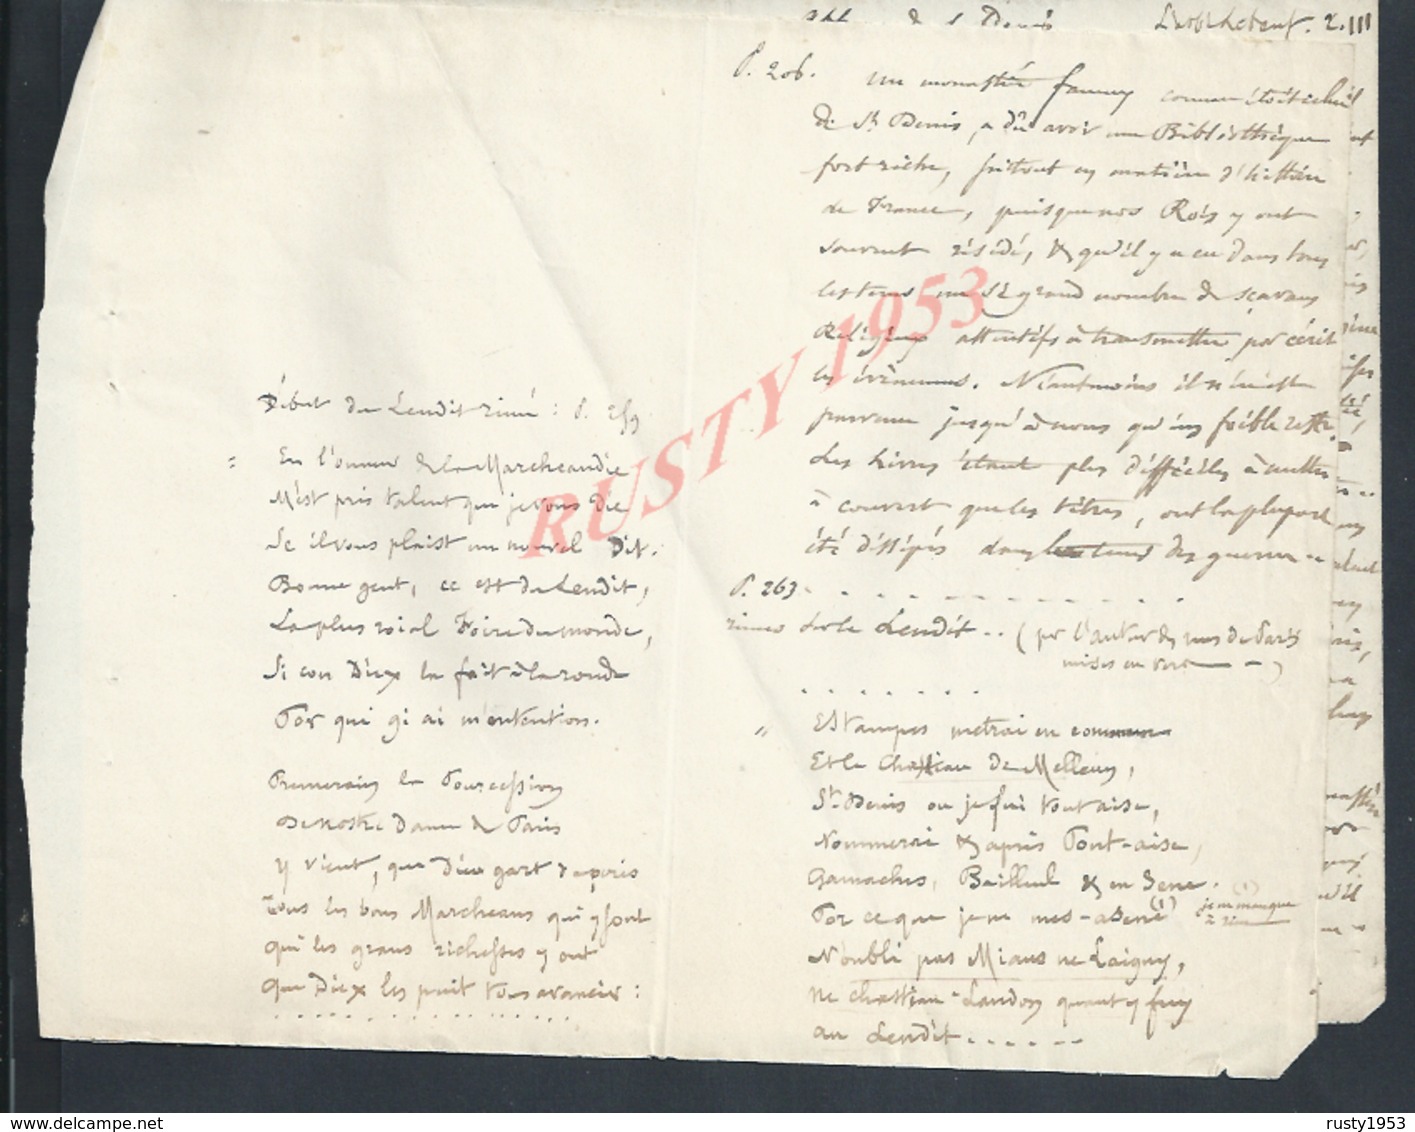 Début du Lendit rimé : P. 259
" En l'onneur de la Marcheandie
M'est pris talent que je vous die
Se il vous plaist un nouvel Dit.
Bonne gent, ce est du Lendit,
La plus roial Foire du monde,
Si con Diex la fait à la ronde
Por qui gi ai m'entention.
Premerain la Pourcession
De Nostre Dame de Paris
Y vient, que Dieu gart de peris
Tous les bons Marcheans qui y sont
Qui les grans richesses y ont
Que Diex les puit tous avancier :
. . . . . . . . . . . . . .
de St Denis Lebeuf. T. III
P. 206. un monastère fameux comme étoit celui
de St Denis, a dû avoir une Bibliothèque
fort riche, surtout en matière d'histoire
de France, puisque nos Rois y ont
souvent résidé, & qu'il y a eu dans tous
les tems un si grand nombre de sçavans
Religieux attentifs à transmettre par écrit
les évènemens. Néantmoins il n'en est
parvenu jusqu'à nous qu'un foible reste.
Les livres étant plus difficiles à mettre
à couvert que les titres, ont la plupart
été dissipés dans les tems des guerres ..
P. 263. . . . . . . . . . . . .
rimes sur le Lendit .. ( par l'auteur des rues de Paris
mises en vers )
. . . . . . .
" Estampes metrai en commun
Et le Chastiau de Melleun,
St Denis ou je fui tout aise,
Nommerai & après Pont-aise,
Gamaches, Bailleul & en Sene.
Por ce que je ne mes-asene (1)
(1) je ne manque
à rien
N'oubli pas Miaus ne Laigny,
ne Chastiau-Landon quant y fuy
au Lendit . . . . . .
RUSTY 1953
delcampe.net
rusty1953